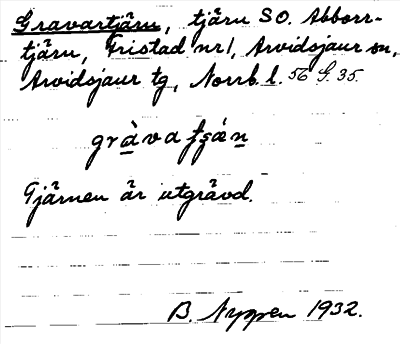 Gravartjärn, tjärn SO. Abborr-
tjärn, Fristad nr 1, Arvidsjaur sn,
Arvidsjaur tg, Norrb. l. 56 G. 35.
gràvafʂǽn
Tjärnen är utgrävd.
B. Nyppen 1932.